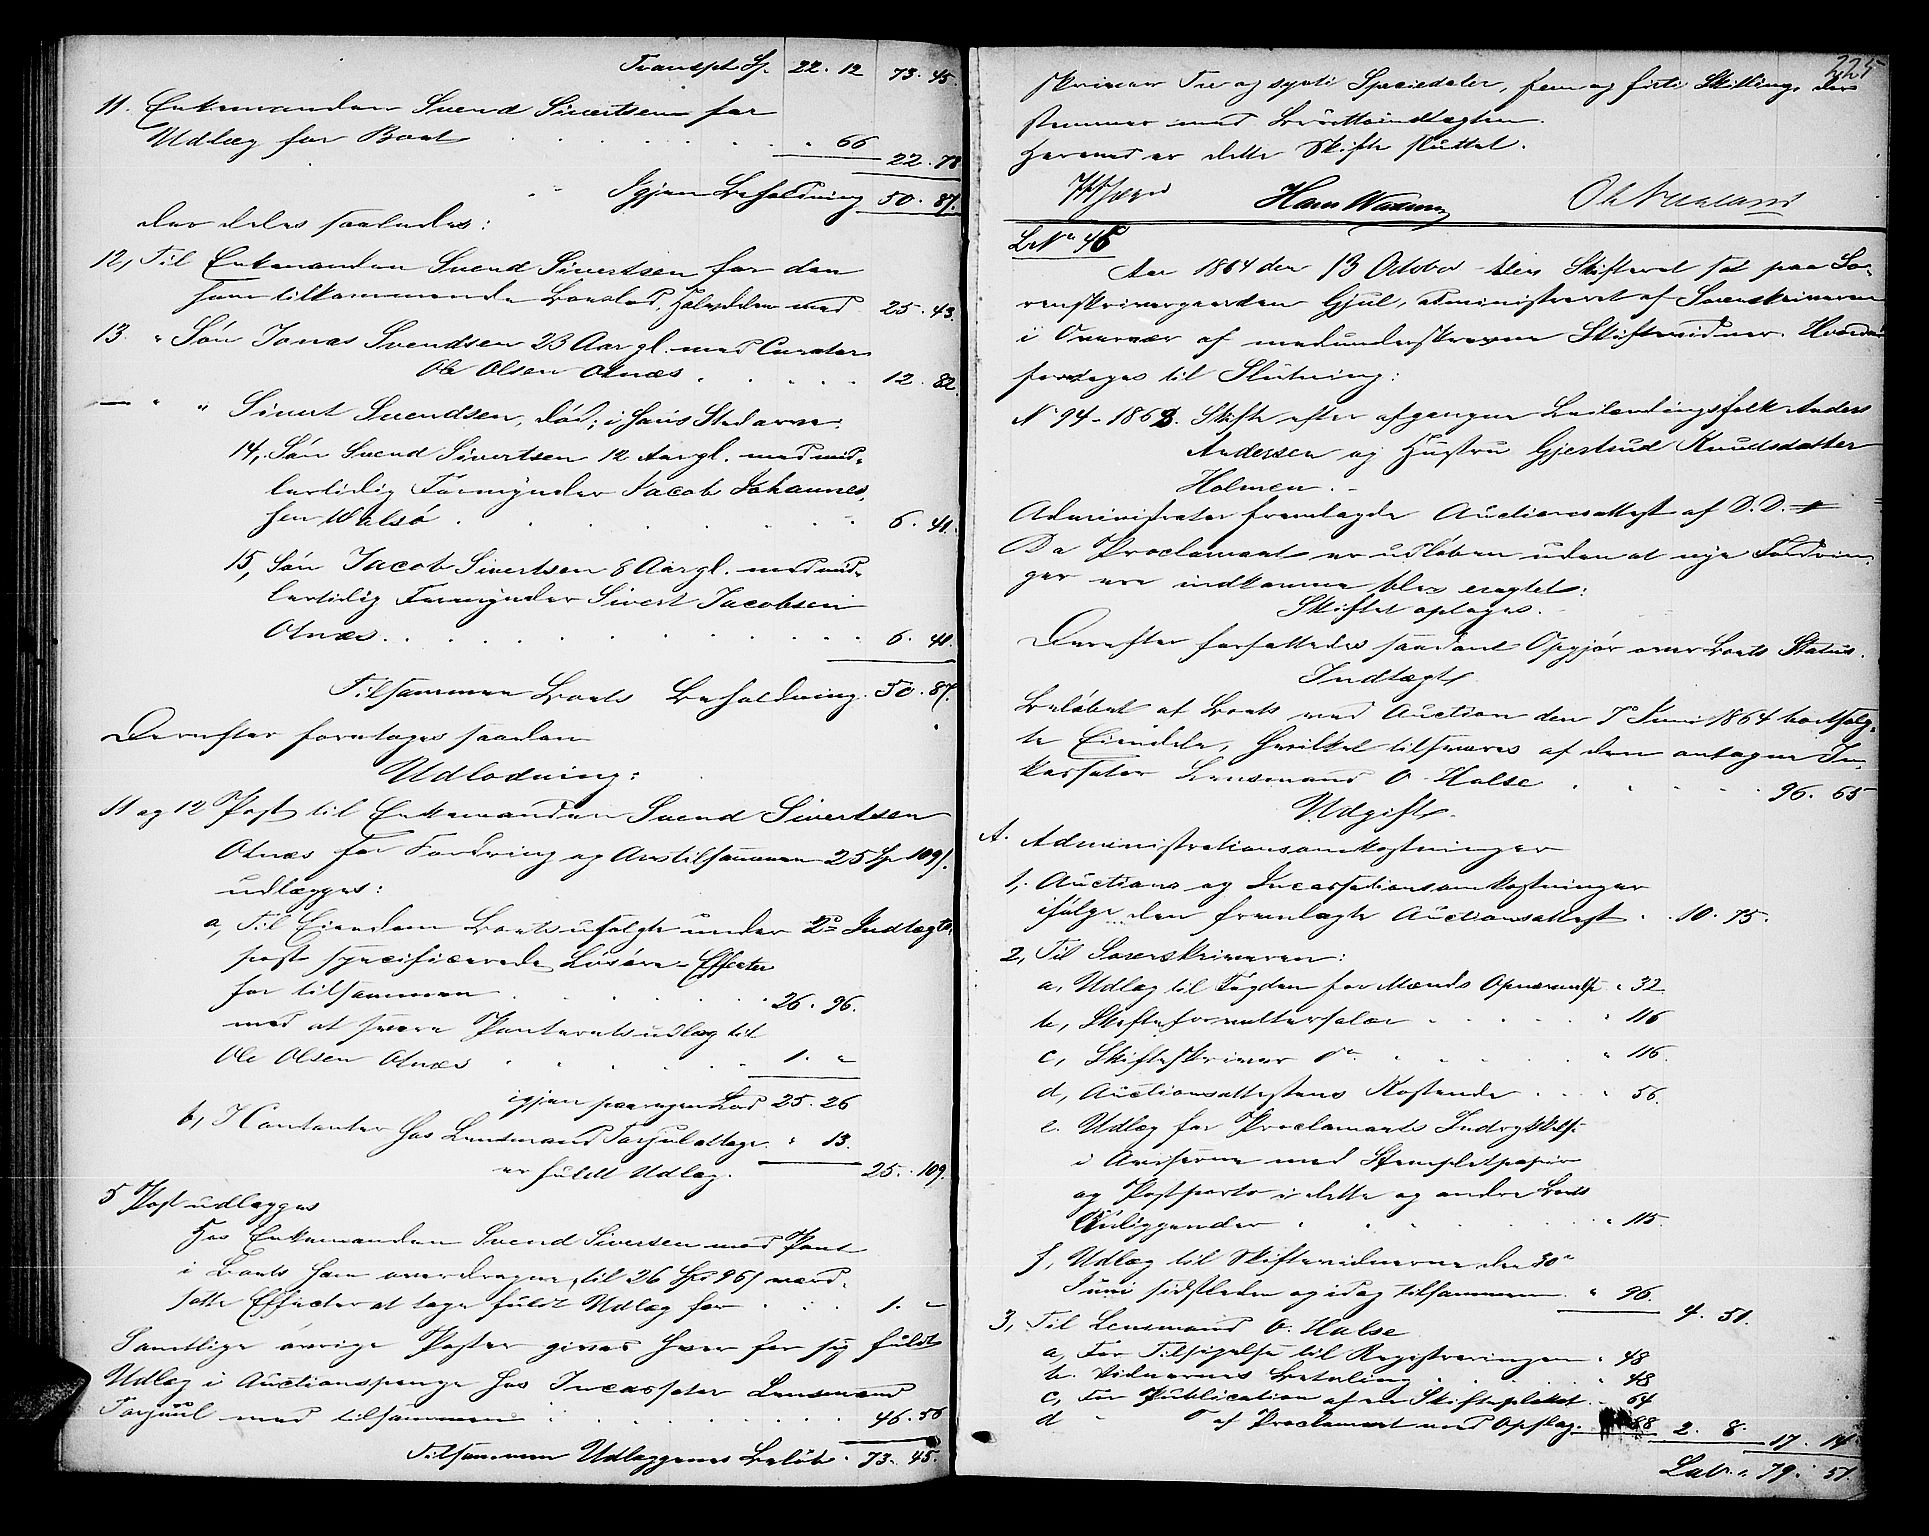 Transpt Sp. 22. 12 73. 45.
11. Enkemanden Svend Sivertsen for
Udlæg for Boet . . . " 66
22. 78
Igjen Beholdning 50. 87.
der deles saaledes:
12, Til Enkemanden Svend Sivertsen for den
ham tilkommende Boeslod, Halvdelen med 25. 43.
13. " Søn Jonas Svendsen 23 Aar gl. med Curator
Ole Olsen Otnæs . . . 12. 82
— " " Sivert Svendsen, død; i hans Sted arve:
14, Søn Svend Sivertsen 12 Aar gl. med mid-
lertidig Formynder Jacob Johannes-
sen Walsø . . . 6. 41.
15, Søn Jacob Sivertsen 8 Aar gl. med mid-
lertidig Formynder Sivert Jacobsen
Otnæs . . . 6. 41.
Tilsammen Boets Beholdning. 50. 87.
Derefter foretoges saadan
Udlodning:
11 og 12 Post til Enkemanden Svend Sivertsen
Otnæs for Fordring og Arv tilsammen 25 Sp 109 s.
udlægges:
a, Til Eiendom Boets usolgte under 2den Indtægts-
post specificerede Løsøre-Effecter
for tilsammen . . . 26. 96.
mod at svare Panteretsudlæg til
Ole Olsen Otnæs . . . 1. "
igjen paa egen Lod 25. 26
b, I Contanter hos Lensmand Torjul attage " 13.
er fuldt Udlæg. 25. 109.
5 Post udlægges
Hos Enkemanden Svend Siversen med Pant
i Boets ham overdragne, til 26 Spd 96 s værd-
satte Effecter at tage fuldt Udlæg for . . 1. "
Samtlige øvrige Poster gives hver for sig fuldt
Udlæg i Auctionspenge hos Incassator Lensmand
Torjuul med tilsammen . . . 46. 56
Tilsammen Udlæggenes Beløb. 73. 45.
225
skriver Tre og syvti Speciedaler, fem og firti Skilling, der
stemmer med Bruttoindtægten.
Hermed er dette Skifte sluttet.
Hans
L. No 46
Aar 1864 den 13 October blev Skifteret sat paa So-
renskrivergaarden Gjul, administreret af Sorenskriveren
i Overvær af medunderskrevne Skiftevidner. Hvorda
foretoges til Slutning:
No 94-1863. Skifte efter afgangne Leilændingsfolk Anders
Andersen og Hustru Gjertrud Knudsdatter
Holmen.
Administrator fremlagde Auctionsattest af D.D. #
Da Proclamaet er udløben uden at nye Fordrin-
ger ere indkomne blev eragtet:
Skiftet optages.
Derefter forfattedes saadant Opgjør over Boets Status.
Indtægt.
Beløbet af Boets ved Auction den 7de Juni 1864 bortsolg-
te Eiendele, hvilket tilsvares af den antagne In-
kassator Lensmand O. Halse . . . 96. 65
Udgift.
A. Administrationsomkostninger
1, Auctions og Incassationsomkostninger
ifølge den fremlagte Auctionsattest . . 10. 75.
2, Til Sorenskriveren:
a, Udlæg til Fogden for Mænds Opnævnelse " 32
b, Skifteforvaltersalær . . . " 116
c, Skifteskriver do . . . " 116.
d, Auctionsattestens Kostende . . . " 56.
e. Udlæg for Proclamaets Indrykkelse
i Aviserne med Stempletpapir
og Postporto i dette og andre Boets
Anliggender . . . " 115.
f, Udlæg til Skiftevidnerne den 30te
Juni sidstleden og idag tilsammen " 96.
4. 51.
3, Til Lensmand O. Halse
a, For Tilsigelse til Registreringen " 48
b. Vidnernes Betaling . . . " 48
c, For Publication af en Skifteplakat. " 64
d " do af Proclamaet med Opslag. 88 2. 8.
17. 14
Lat. . 79. 51.